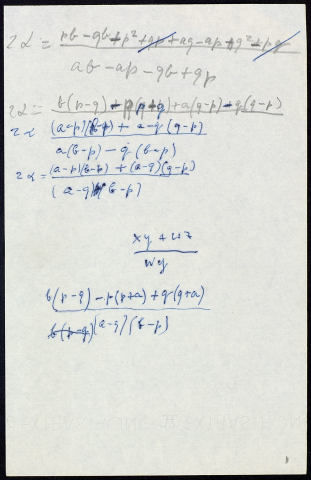 2α = pb - qb + p² + qp + aq - ap + q² - pq
ab - ap - qb + qp
2α = b(p-q) + p(p+q) + a(q-p) + q(q-p)
2α (a-p)(b-p) + a-q (q-p)
a(b-p) - q(b-p)
2α = (a-p)(b-p) + (a-q)(q-p)
(a-q)(b-p)
xy + wz
wy
b(p-q) - p(p+a) + q(q+a)
b(p-q) (a-q)(b-p)